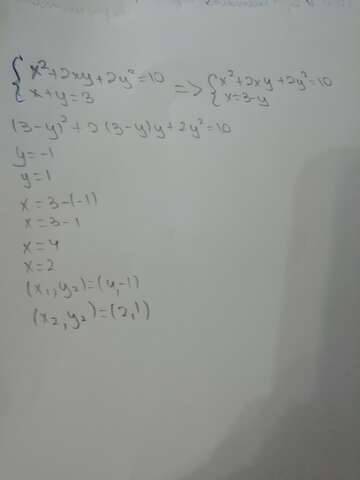 {x²+2xy+2y²=10 => {x²+2xy+2y²=10
x+y=3 x=3-y
(3-y)²+2(3-y)y+2y²=10
y=-1
y=1
x=3-(-1)
x=3-1
x=4
x=2
(x₁,y₂)=(4,-1)
(x₂,y₂)=(2,1)